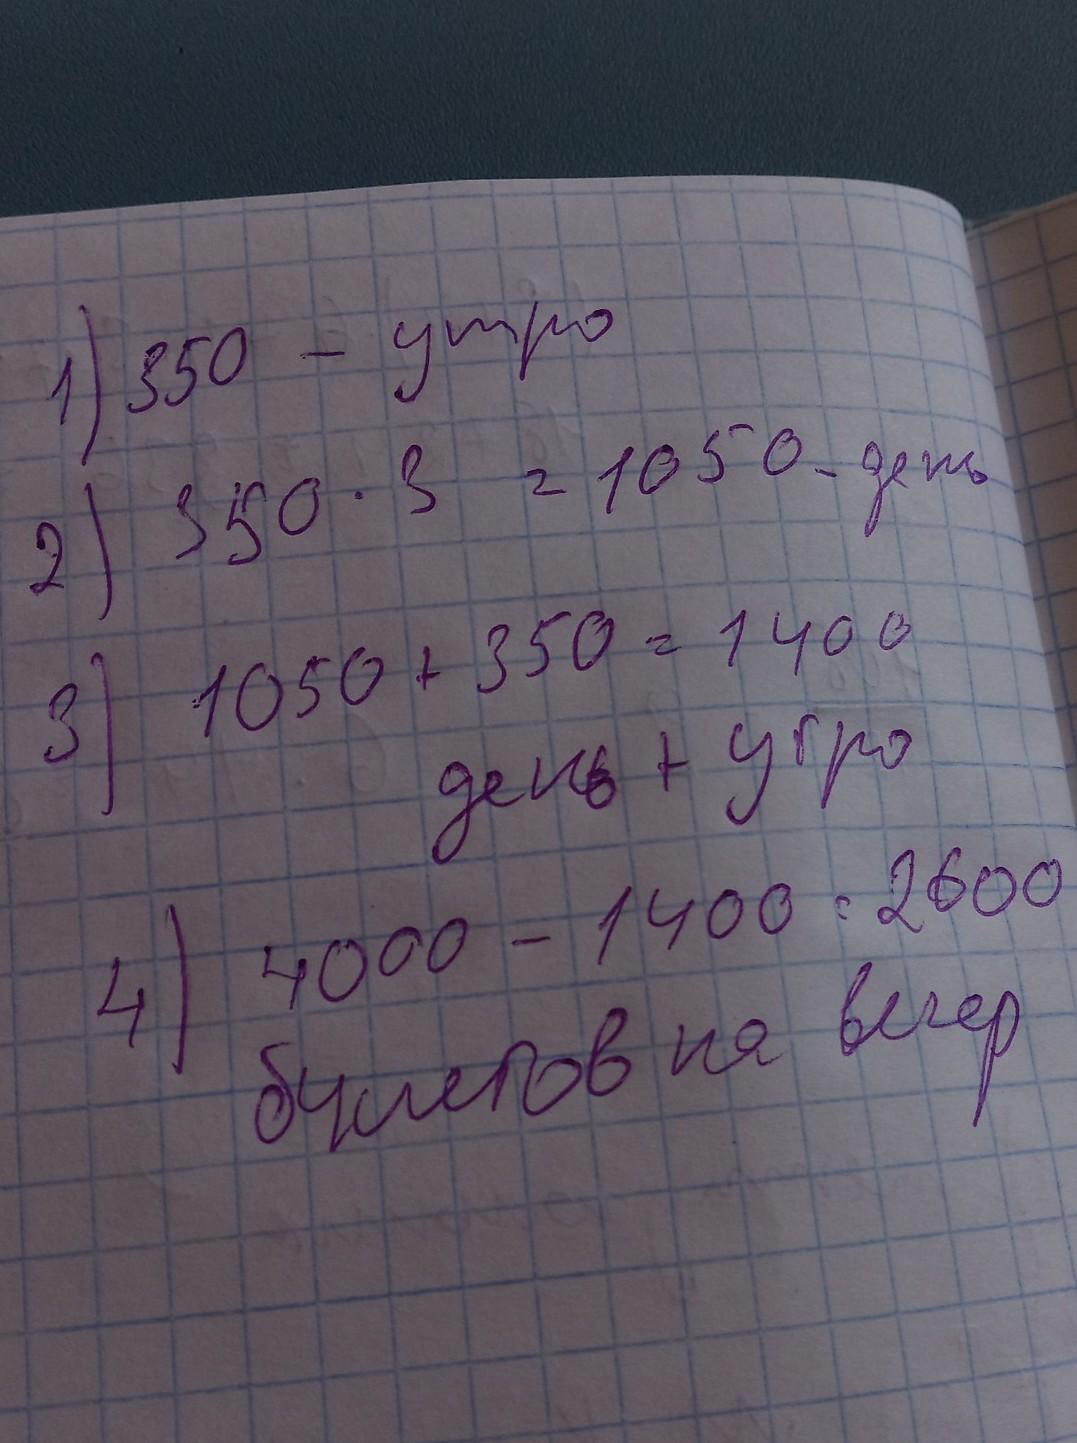 1) 350 - утро
2) 350 · 3 = 1050 - день
3) 1050 + 350 = 1400
день + утро
4) 4000 - 1400 = 2600
буклетов на вечер